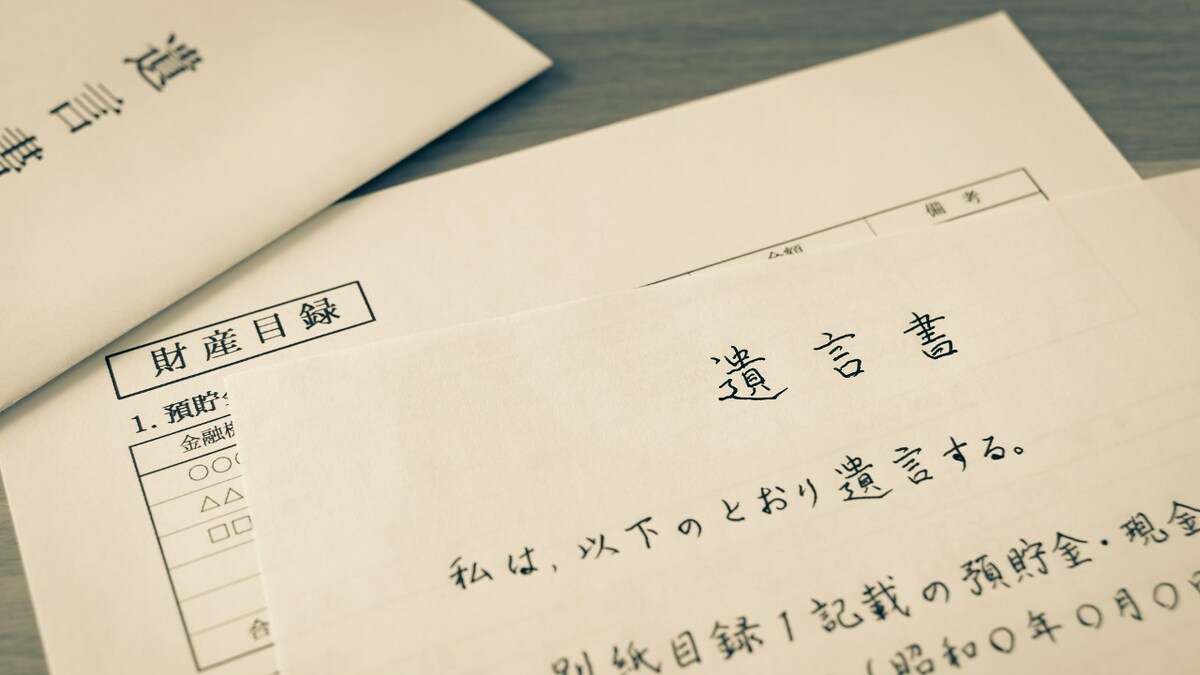 遺言書
財産目録
1. 預貯
金額
備考
金融機
○○○
△△
□□
合
遺言書
私は、以下のとおり遺言する。
別紙目録1記載の預貯金・現金
(昭和○年○月○日